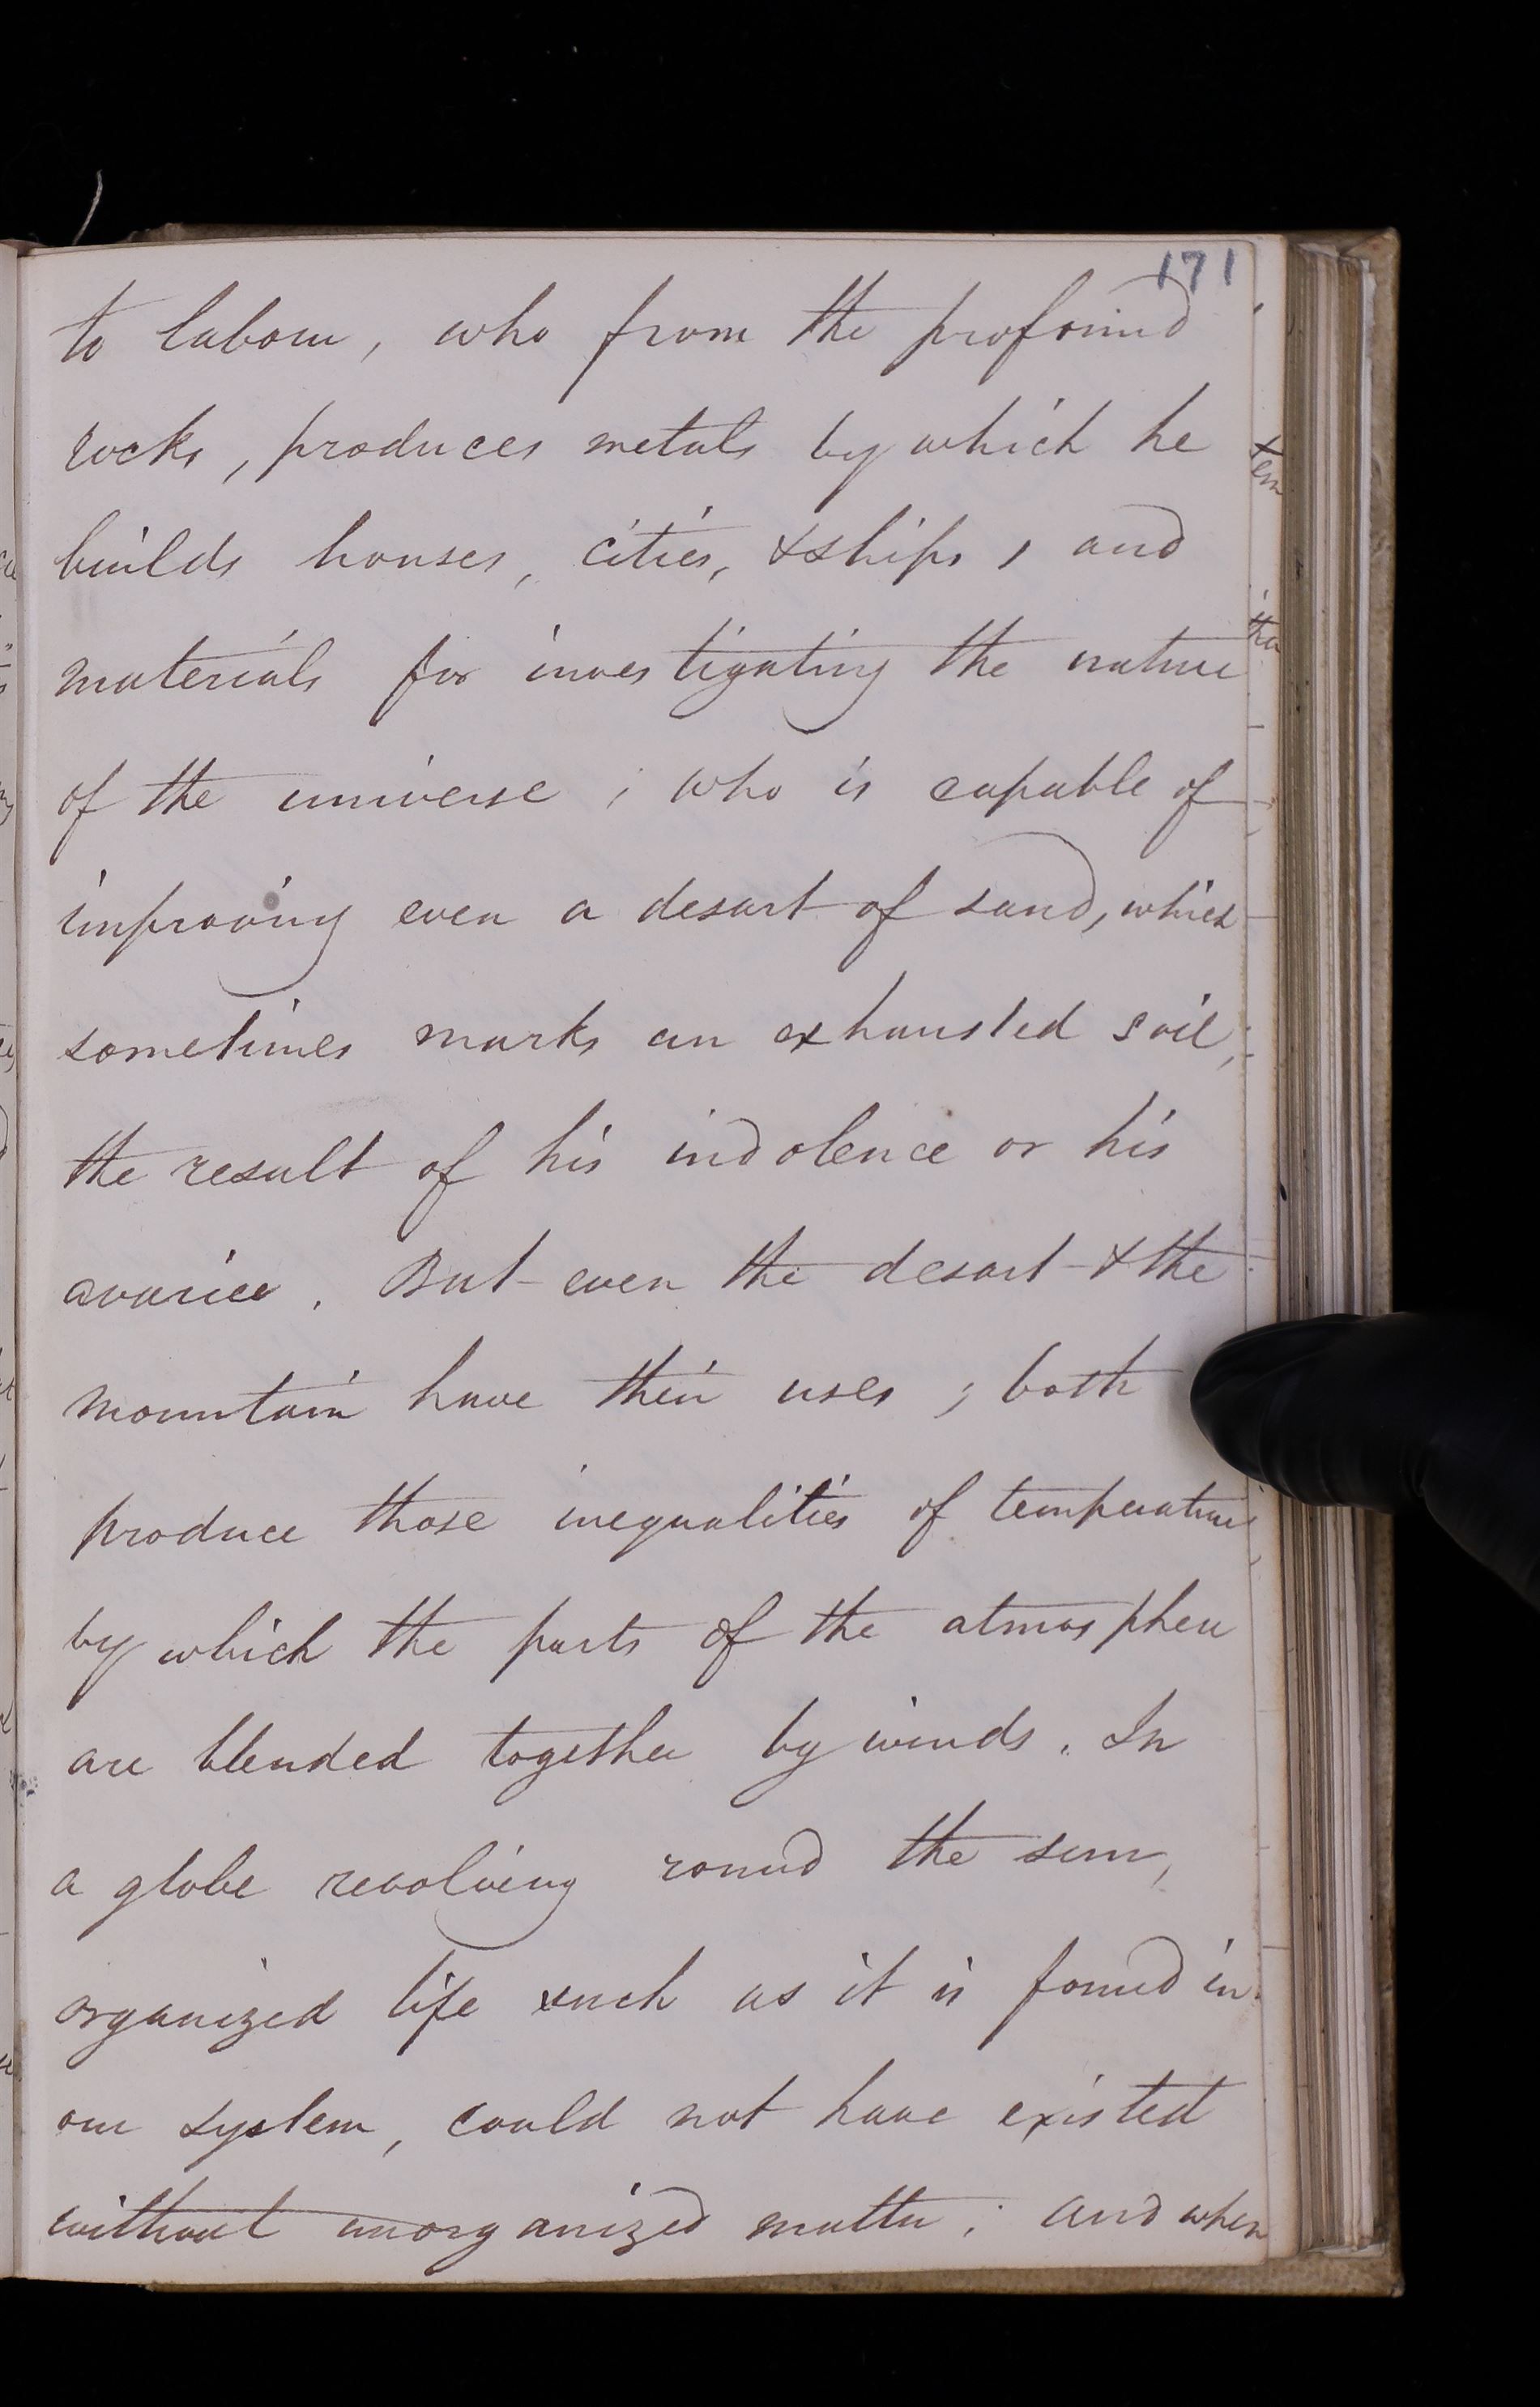 171
to labour, who from the profound
rocks, produces metals by which he
builds houses, cities, & ships, and
materials for investigating the nature
of the universe; who is capable of
improving even a desart of sand, which
sometimes marks an exhausted soil;
the result of his indolence or his
avarice. But even the desart & the
mountain have their uses; both
produce those inequalities of temperature
by which the parts of the atmosphere
are blended together by winds. In
a globe revolving round the sun,
organized life such as it is found in
our system, could not have existed
without unorganized matter; and when